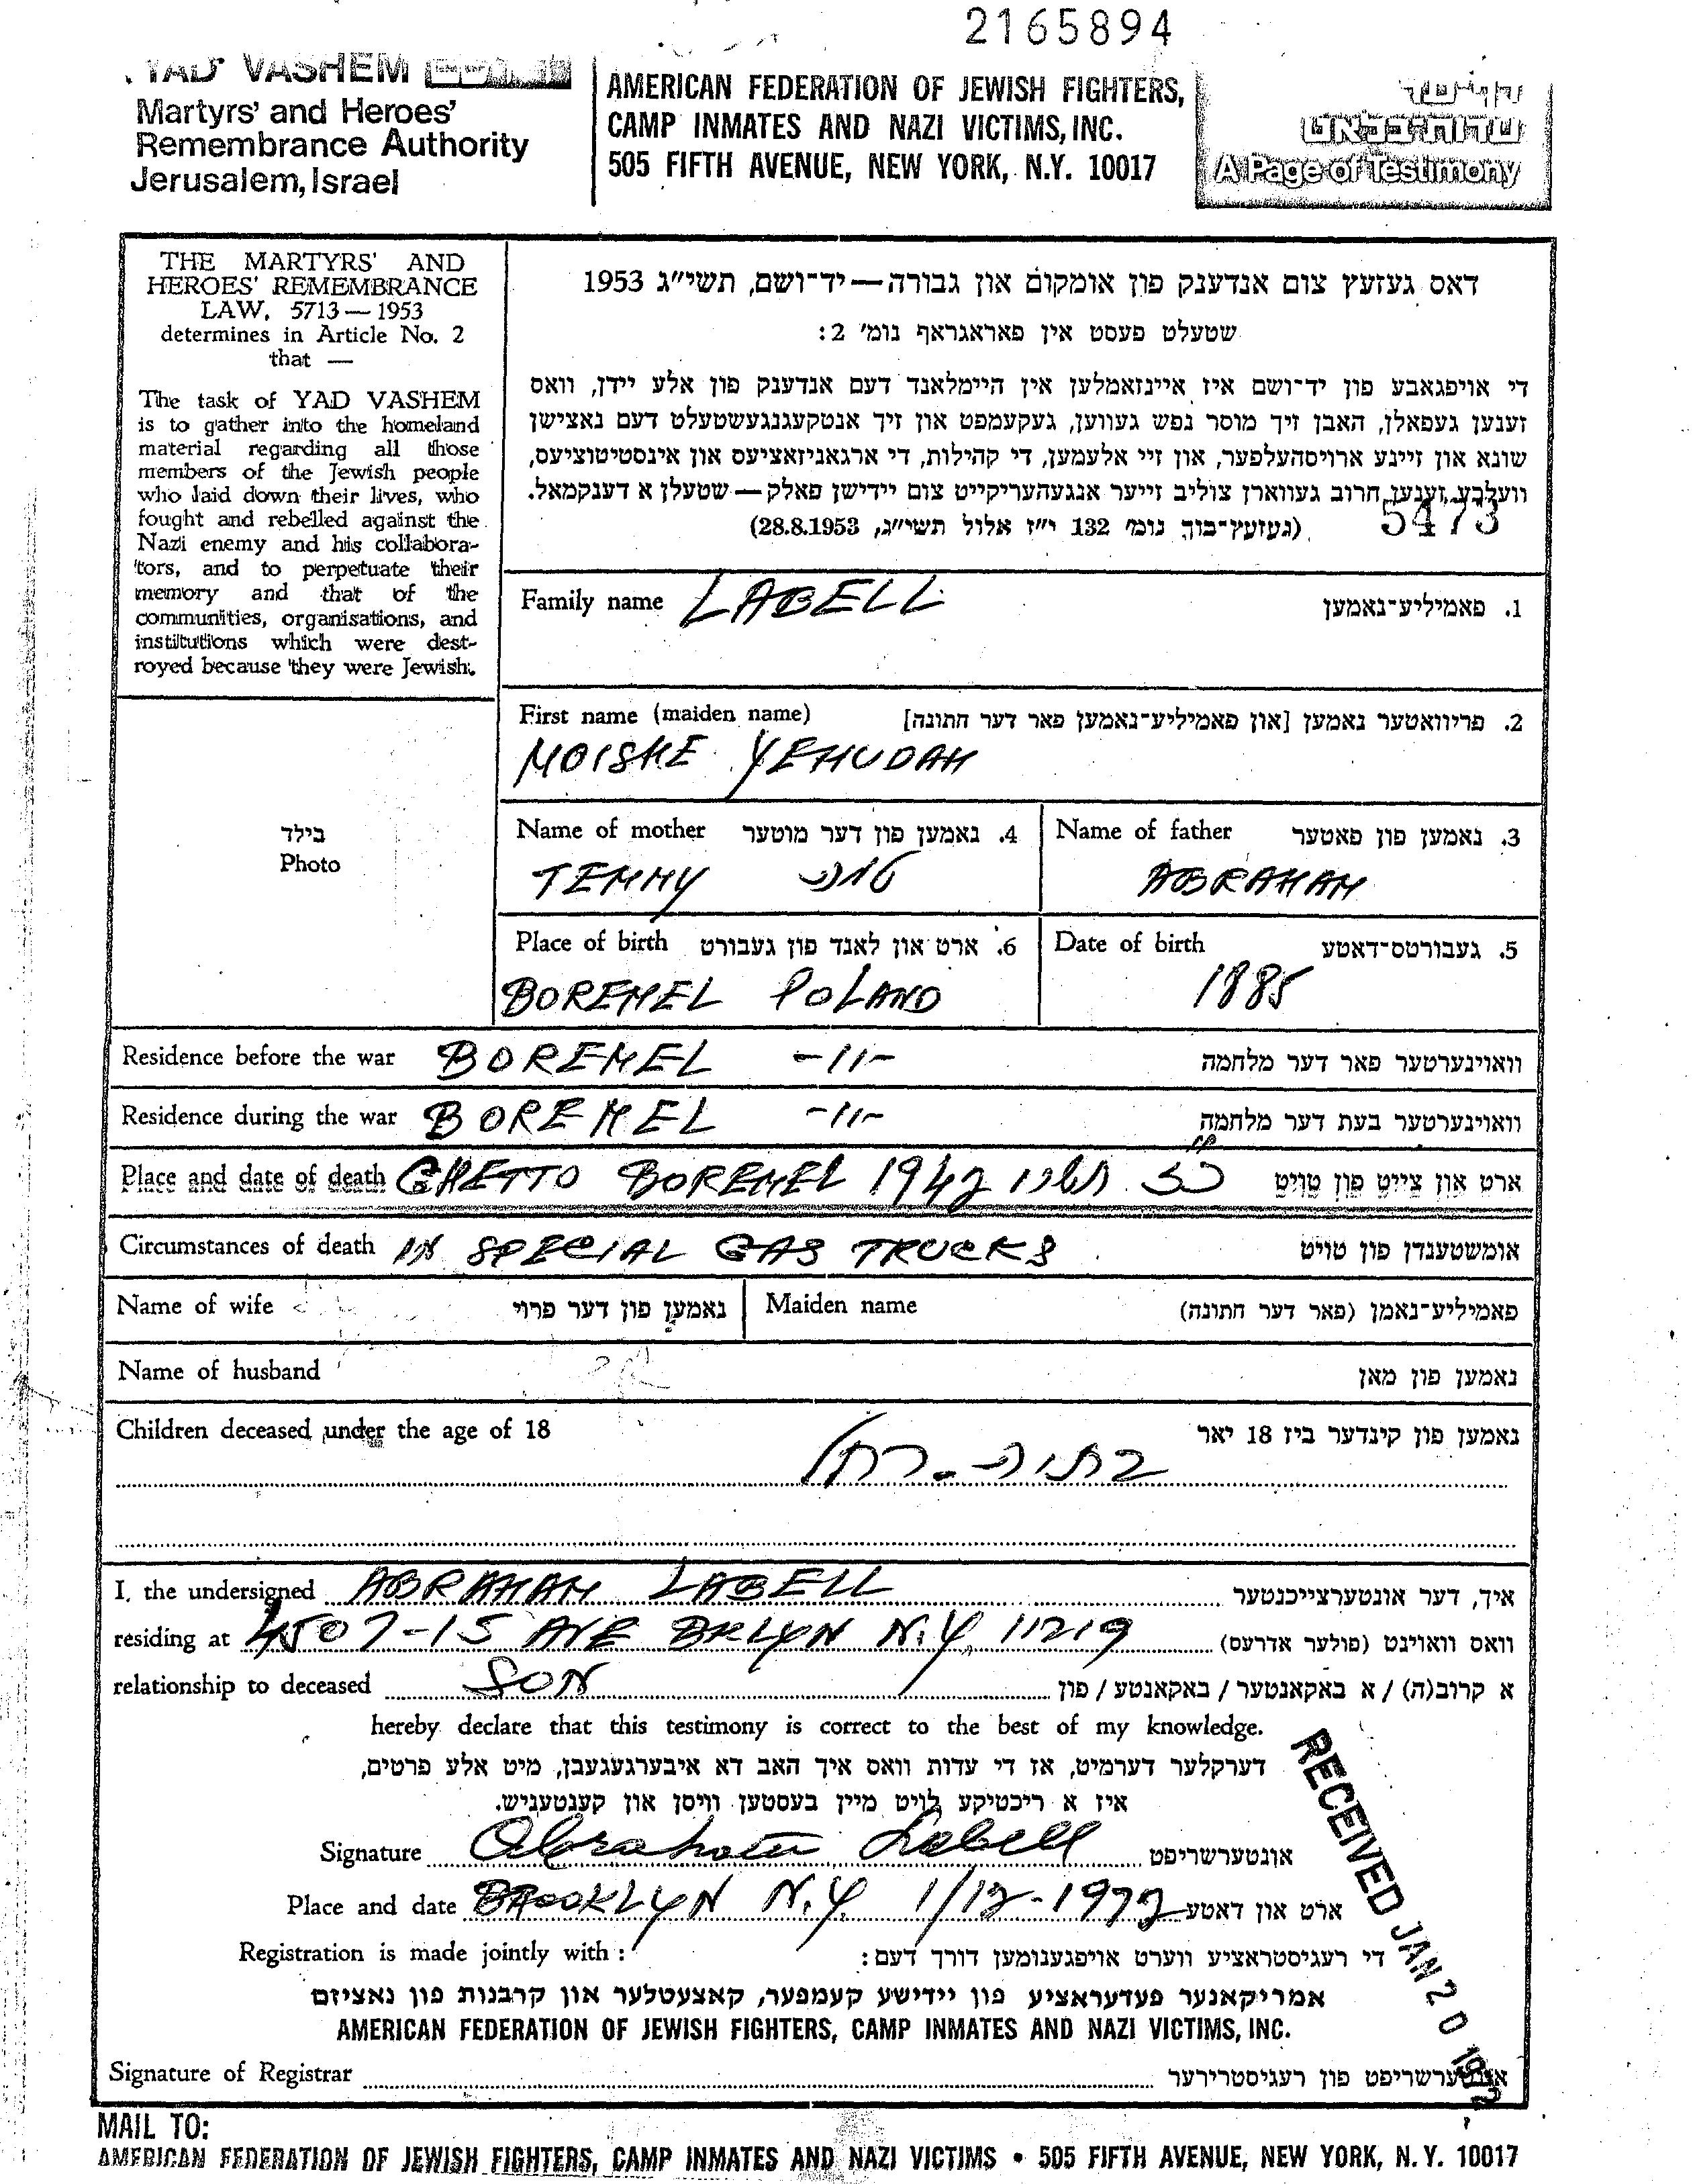 2165894
YAD VASHEM
Martyrs' and Heroes'
Remembrance Authority
Jerusalem, Israel
AMERICAN FEDERATION OF JEWISH FIGHTERS,
CAMP INMATES AND NAZI VICTIMS, INC.
505 FIFTH AVENUE, NEW YORK, N.Y. 10017
דף־עד
עדות־בלאט
A Page of Testimony
THE MARTYRS' AND
HEROES' REMEMBRANCE
LAW, 5713—1953
determines in Article No. 2
that —
The task of YAD VASHEM
is to gather into the homeland
material regarding all those
members of the Jewish people
who laid down their lives, who
fought and rebelled against the
Nazi enemy and his collabora-
tors, and to perpetuate their
memory and that of the
communities, organisations, and
institutions which were dest-
royed because they were Jewish.
דאס געזעץ צום אנדענק פון אומקום און גבורה—יד־ושם, תשי״ג 1953
שטעלט פעסט אין פאראגראף נומ׳ 2:
די אויפגאבע פון יד־ושם איז איינזאמלען אין היימלאנד דעם אנדענק פון אלע יידן, וואס
זענען געפאלן, האבן זיך מוסר נפש געווען, געקעמפט און זיך אנטקעגנגעשטעלט דעם נאצישן
שונא און זיינע ארויסהעלפער, און זיי אלעמען, די קהילות, די ארגאניזאציעס און אינסטיטוציעס,
וועלכע זענען חרוב געווארן צוליב זייער אנגעהעריקייט צום יידישן פאלק—שטעלן א דענקמאל.
(געזעץ־בוך נומ׳ 132 י״ז אלול תשי״ג, 28.8.1953)
5473
Family name LABELL 1. פאמיליע־נאמען
First name (maiden name) 2. פריוואטער נאמען [און פאמיליע־נאמען פאר דער חתונה]
MOISHE YEHUDAH
בילד
Photo
Name of mother 4. נאמען פון דער מוטער
TEMMY
Name of father 3. נאמען פון פאטער
ABRAHAM
Place of birth 6. ארט און לאנד פון געבורט
BOREMEL POLAND
Date of birth 5. געבורטס־דאטע
1885
Residence before the war BOREMEL -11- וואוינערטער פאר דער מלחמה
Residence during the war BOREMEL -11- וואוינערטער בעת דער מלחמה
Place and date of death GHETTO BOREMEL 1942 ארט און צייט פון טויט
Circumstances of death IN SPECIAL GAS TRUCKS אומשטענדן פון טויט
Name of wife נאמען פון דער פרוי Maiden name פאמיליע־נאמן (פאר דער חתונה)
Name of husband נאמען פון מאן
Children deceased under the age of 18 נאמען פון קינדער ביז 18 יאר
בתיה - רחל
I, the undersigned ABRAHAM LABELL איך, דער אונטערצייכנטער
residing at 4507-15 AVE BKLYN N.Y. 11219 וואס וואוינט (פולער אדרעס)
relationship to deceased SON א קרוב(ה) / א באקאנטער / באקאנטע / פון
hereby declare that this testimony is correct to the best of my knowledge.
דערקלער דערמיט, אז די עדות וואס איך האב דא איבערגעגעבן, מיט אלע פרטים,
איז א ריכטיקע לויט מיין בעסטען וויסן און קענטעניש.
Signature Abraham Labell אונטערשריפט
Place and date BROOKLYN N.Y. 1/12-1972 ארט און דאטע
RECEIVED JAN 20 1972
Registration is made jointly with : די רעגיסטראציע ווערט אויפגענומען דורך דעם:
אמריקאנער פעדעראציע פון יידישע קעמפער, קאצעטלער און קרבנות פון נאציזם
AMERICAN FEDERATION OF JEWISH FIGHTERS, CAMP INMATES AND NAZI VICTIMS, INC.
Signature of Registrar אונטערשריפט פון רעגיסטרירער
MAIL TO:
AMERICAN FEDERATION OF JEWISH FIGHTERS, CAMP INMATES AND NAZI VICTIMS • 505 FIFTH AVENUE, NEW YORK, N.Y. 10017